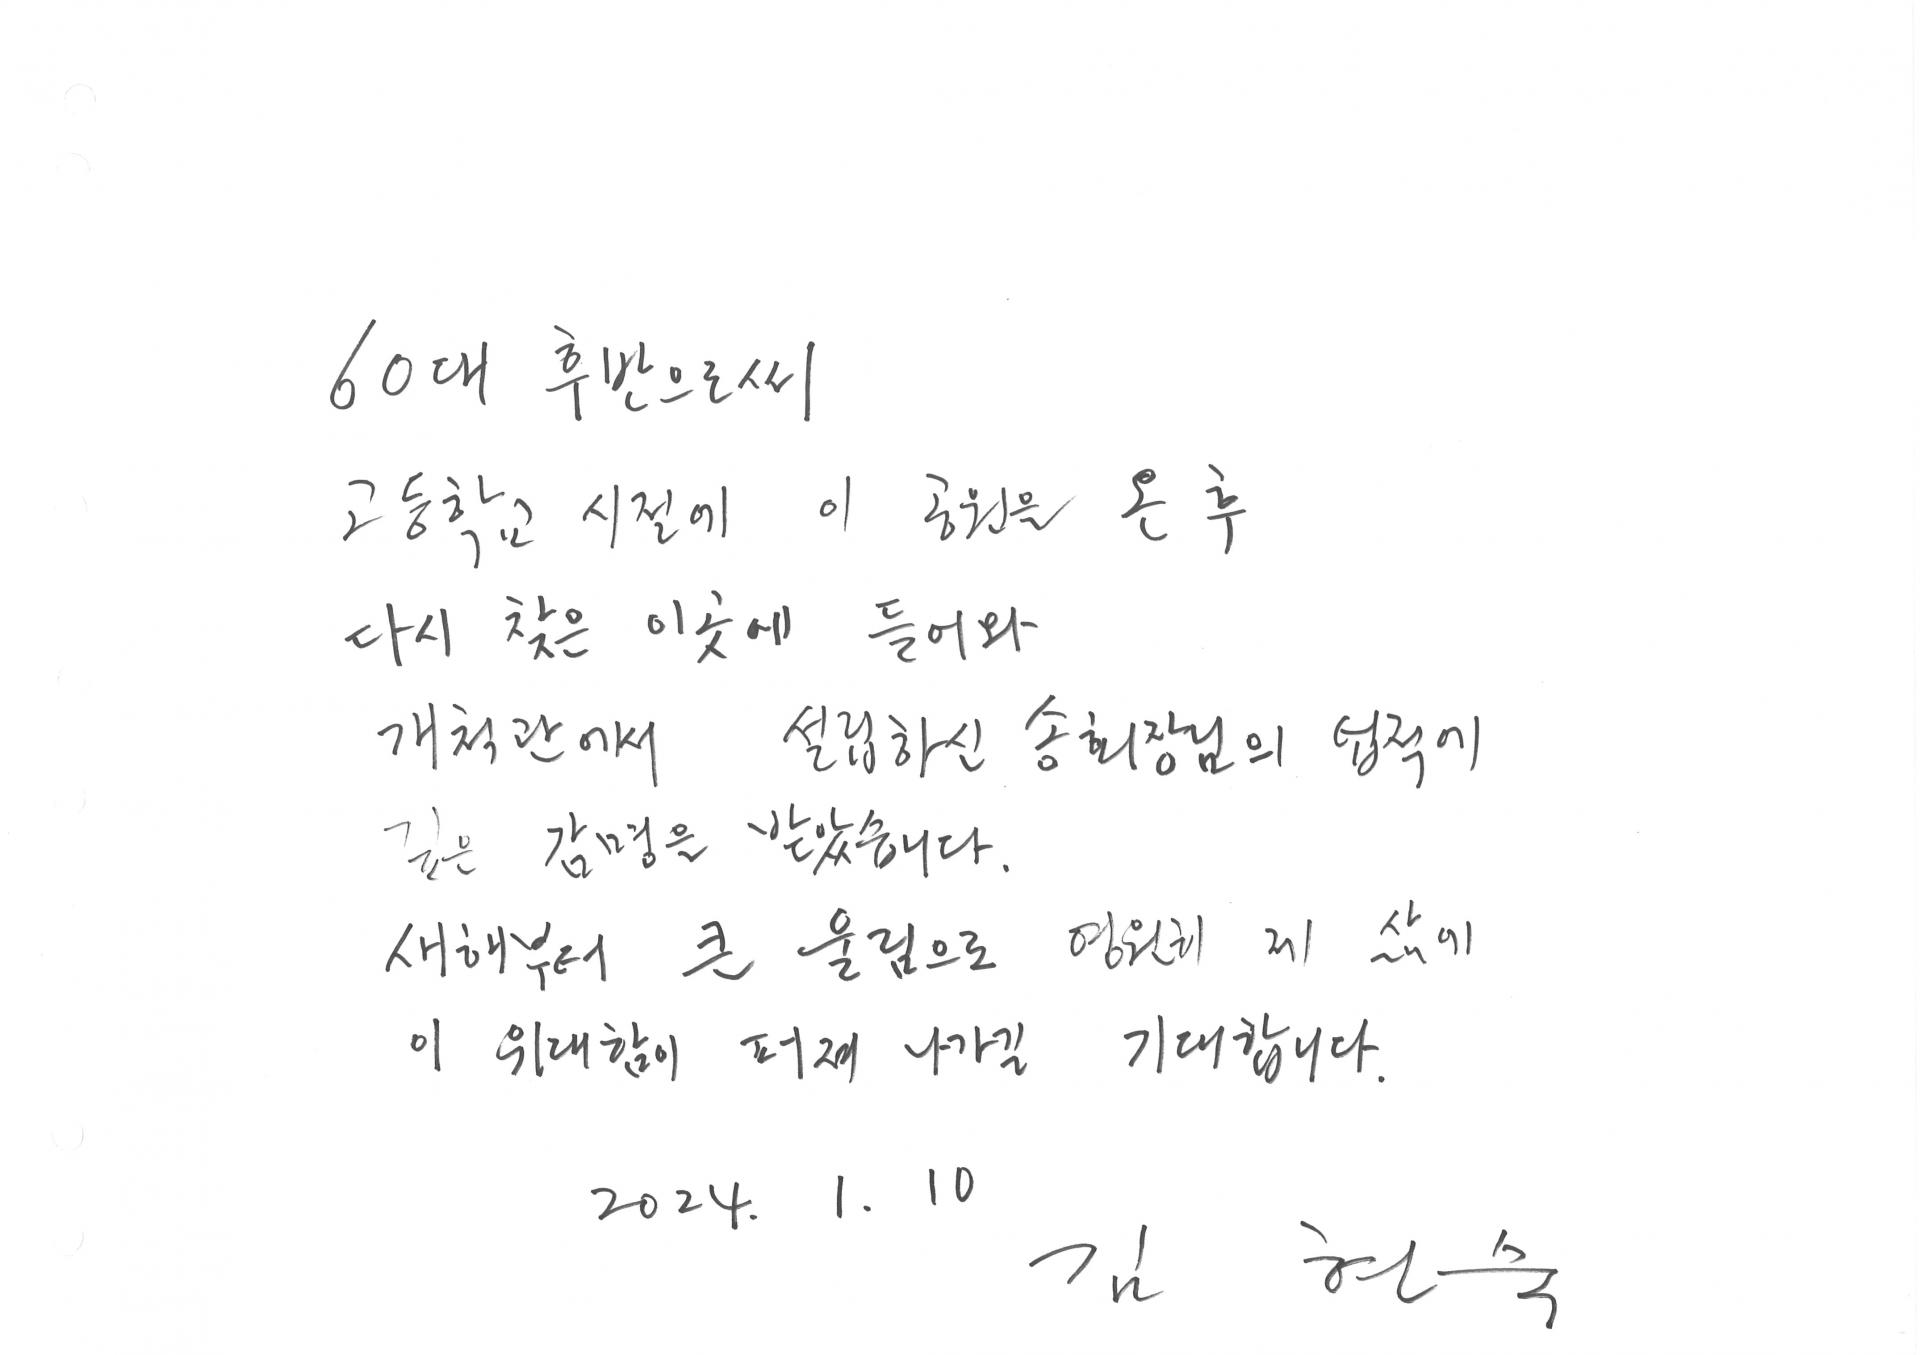 60대 후반으로써
고등학교 시절에 이 공원을 온 후
다시 찾은 이곳에 들어와
개척관에서 설립하신 송회장님의 업적에
깊은 감명을 받았습니다.
새해부터 큰 울림으로 영원히 제 삶에
이 위대함이 퍼져 나가길 기대합니다.
2024. 1. 10
김 현숙